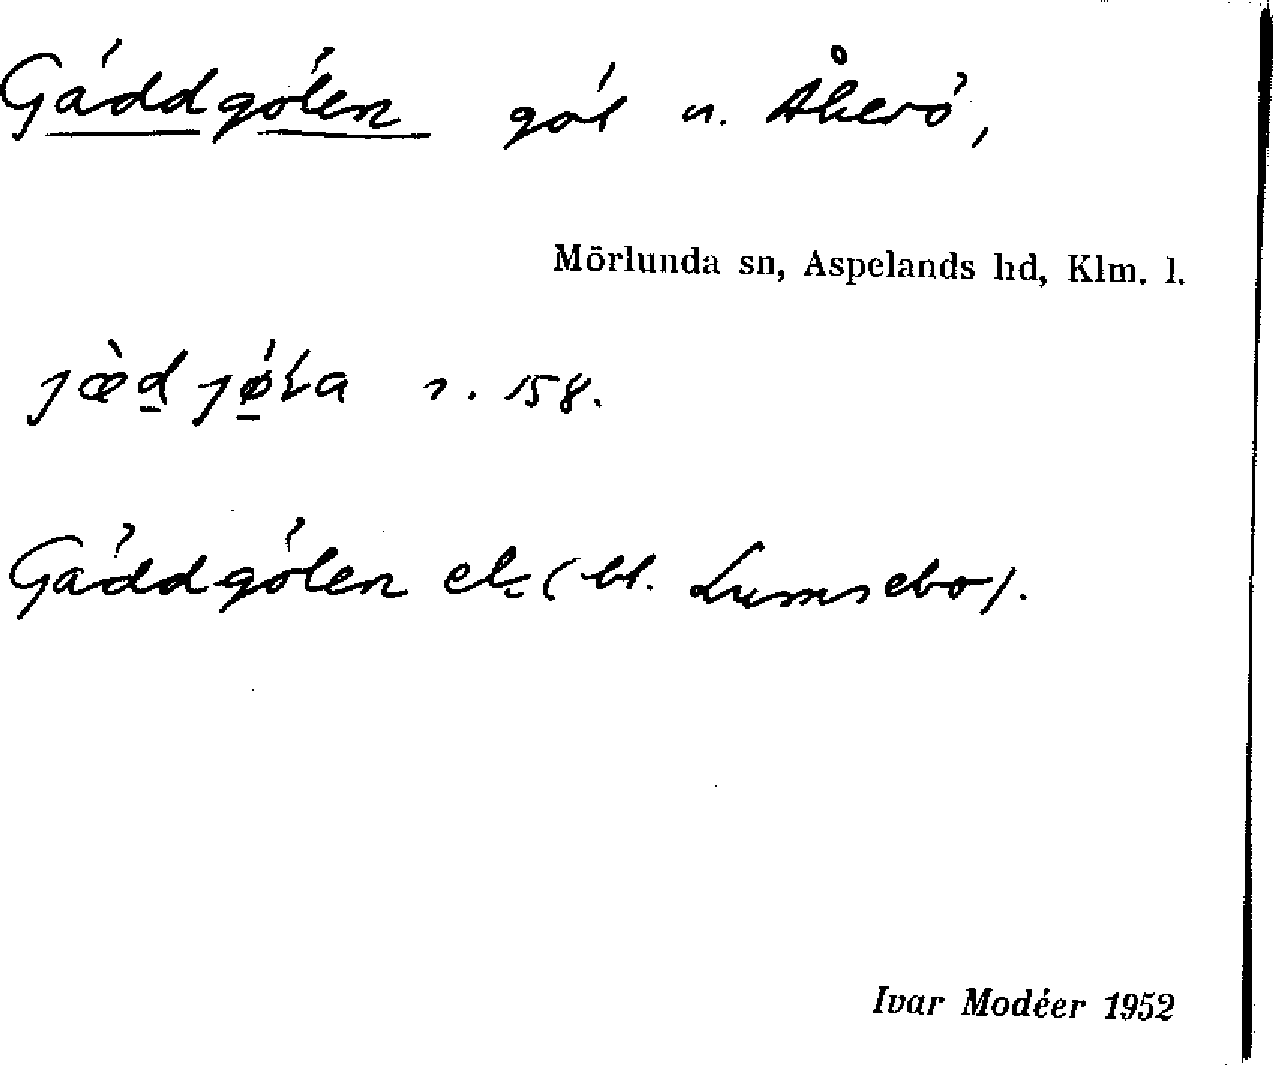 Gäddgölen göl u. Åkerö,
Mörlunda sn, Aspelands hd, Klm. l.
jæ̀d̠ jǿ̠ɫa s. 158.
Gäddgölen ek (bl. Lumsebo).
Ivar Modéer 1952